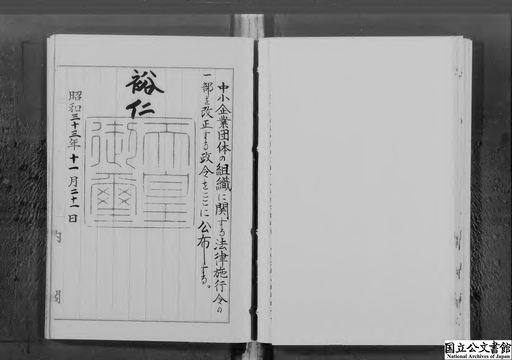 中小企業団体の組織に関する法律施行令の
一部を改正する政令をここに公布する。
裕仁
天皇御璽
昭和三十三年十一月二十一日
内閣
国立公文書館
National Archives of Japan